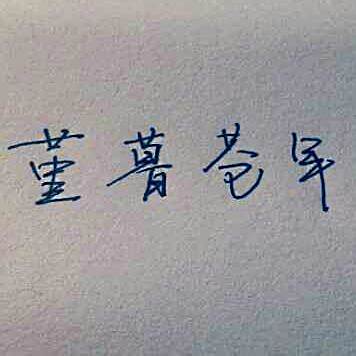 堇暮苍年